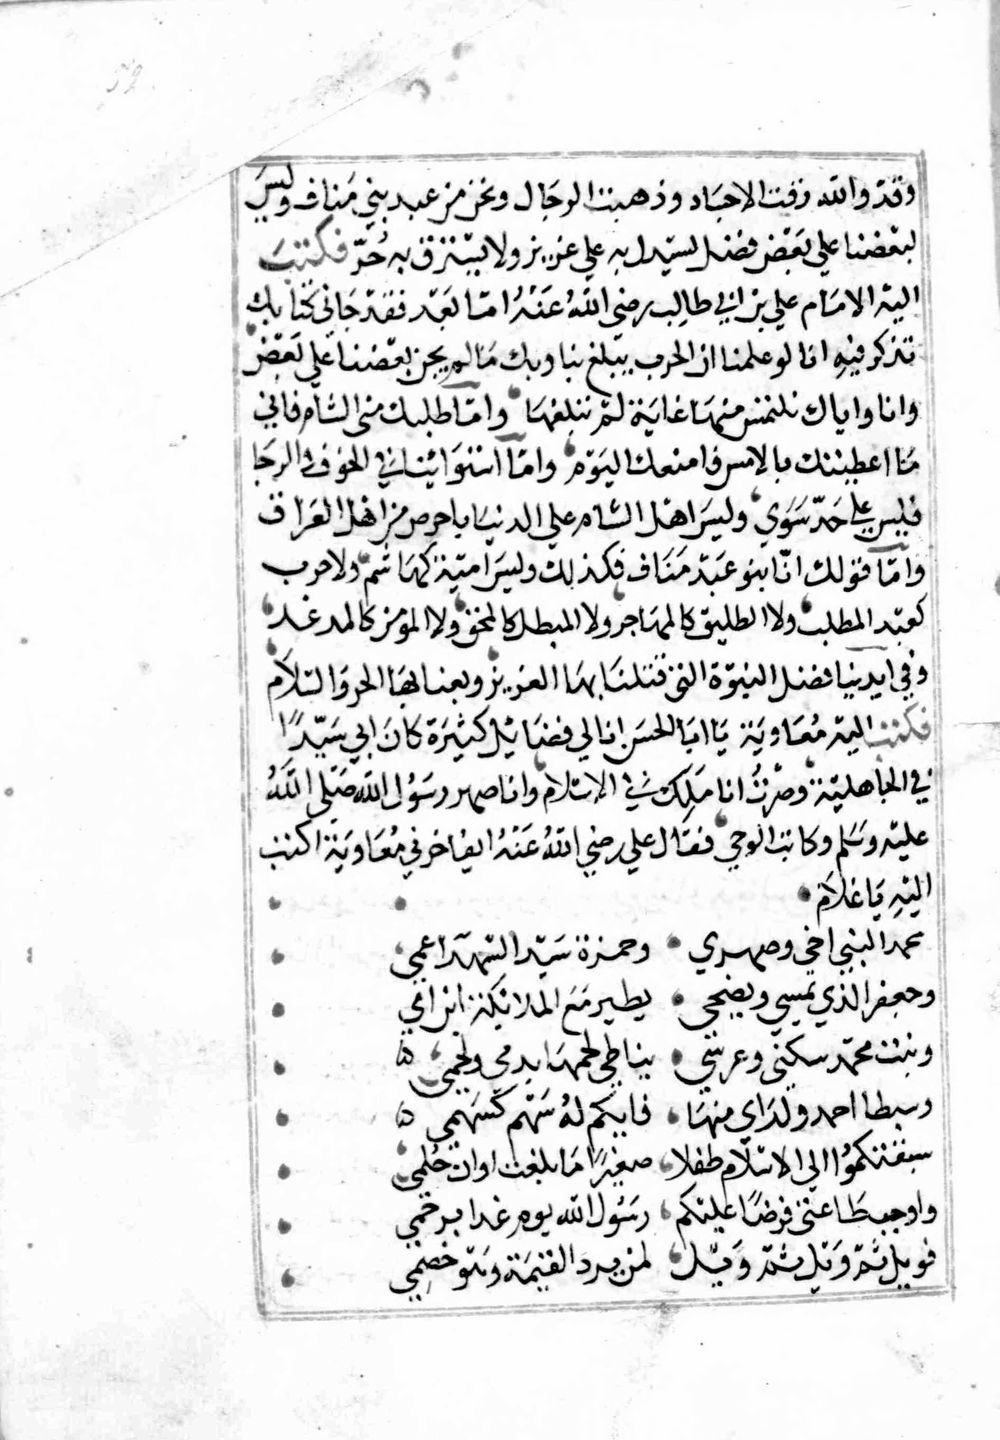 وقد والله رقت الاجساد وذهبت الرجال ونحن من عبد بني مناف وليس
لبعضنا علي بعض فضل ليستدل به علي عزيز ولا يسترق به حر فكتب
اليه الامام علي بن ابي طالب رضى الله عنه اما بعد فقد جاني كتابك
تذكر فيه انا لو علمنا ان الحرب يبلغ بنا وبك ما لم يجن بعضنا علي بعض
وانا واياك نلتمس منها غاية لم نبلغها واما طلبك منى الشام فاني
ما اعطيتك بالامس وامنعك اليوم واما استواينا في الخوف والرجا
فليس علي حد سوي وليس اهل الشام علي الدنيا باحرص من اهل العراق
واما قولك انا بنو عبد مناف فكذلك وليس امية كهاشم ولا حرب
كعبد المطلب ولا الطليق كالمهاجر ولا المبطل كالمحق ولا المومن كالمدغل
وفي ايدينا فضل النبوة التي قتلنا بها العزيز وبعنا بها الحر والسلام
فكتب اليه معاوية يا ابا الحسن ان لي فضايل كثيرة كان ابي سيدا
في الجاهلية وصرت انا ملك في الاسلام وانا صهر رسول الله صلى الله
عليه وسلم وكاتب الوحي فقال علي رضي الله عنه ايفاخرني معاوية اكتب
اليه يا غلام
محمد النبي اخي وصهري وحمزة سيد الشهدا عمي
وجعفر الذي يمسي ويضحي يطير مع الملائكة ابن امي
وبنت محمد سكني وعرسي يناطي لحمها بدمي ولحمي
وسبطا احمد ولداي منها فايكم له سهم كسهمي
سبقتكموا الي الاسلام طفلا صغيرا ما بلغت اوان حلمي
واوجب طاعتي فرضا عليكم رسول الله يوم غدا برخمي
فويل ثم ويل ثم ويل لمن يرد القيمة وهو خصمي